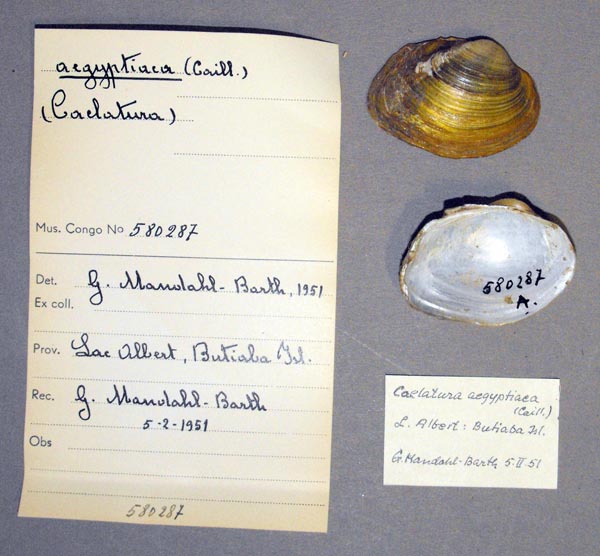 aegyptiaca (Caill.)
(Caelatura)
Mus. Congo No 580287
Det. G. Mandahl-Barth, 1951
Ex coll.
Prov. Lac Albert, Butiaba Isl.
Rec. G. Mandahl-Barth
5-2-1951
Obs
580287
580287
A.
Caelatura aegyptiaca
(Caill.)
L. Albert: Butiaba Isl.
G. Mandahl-Barth 5.II.51